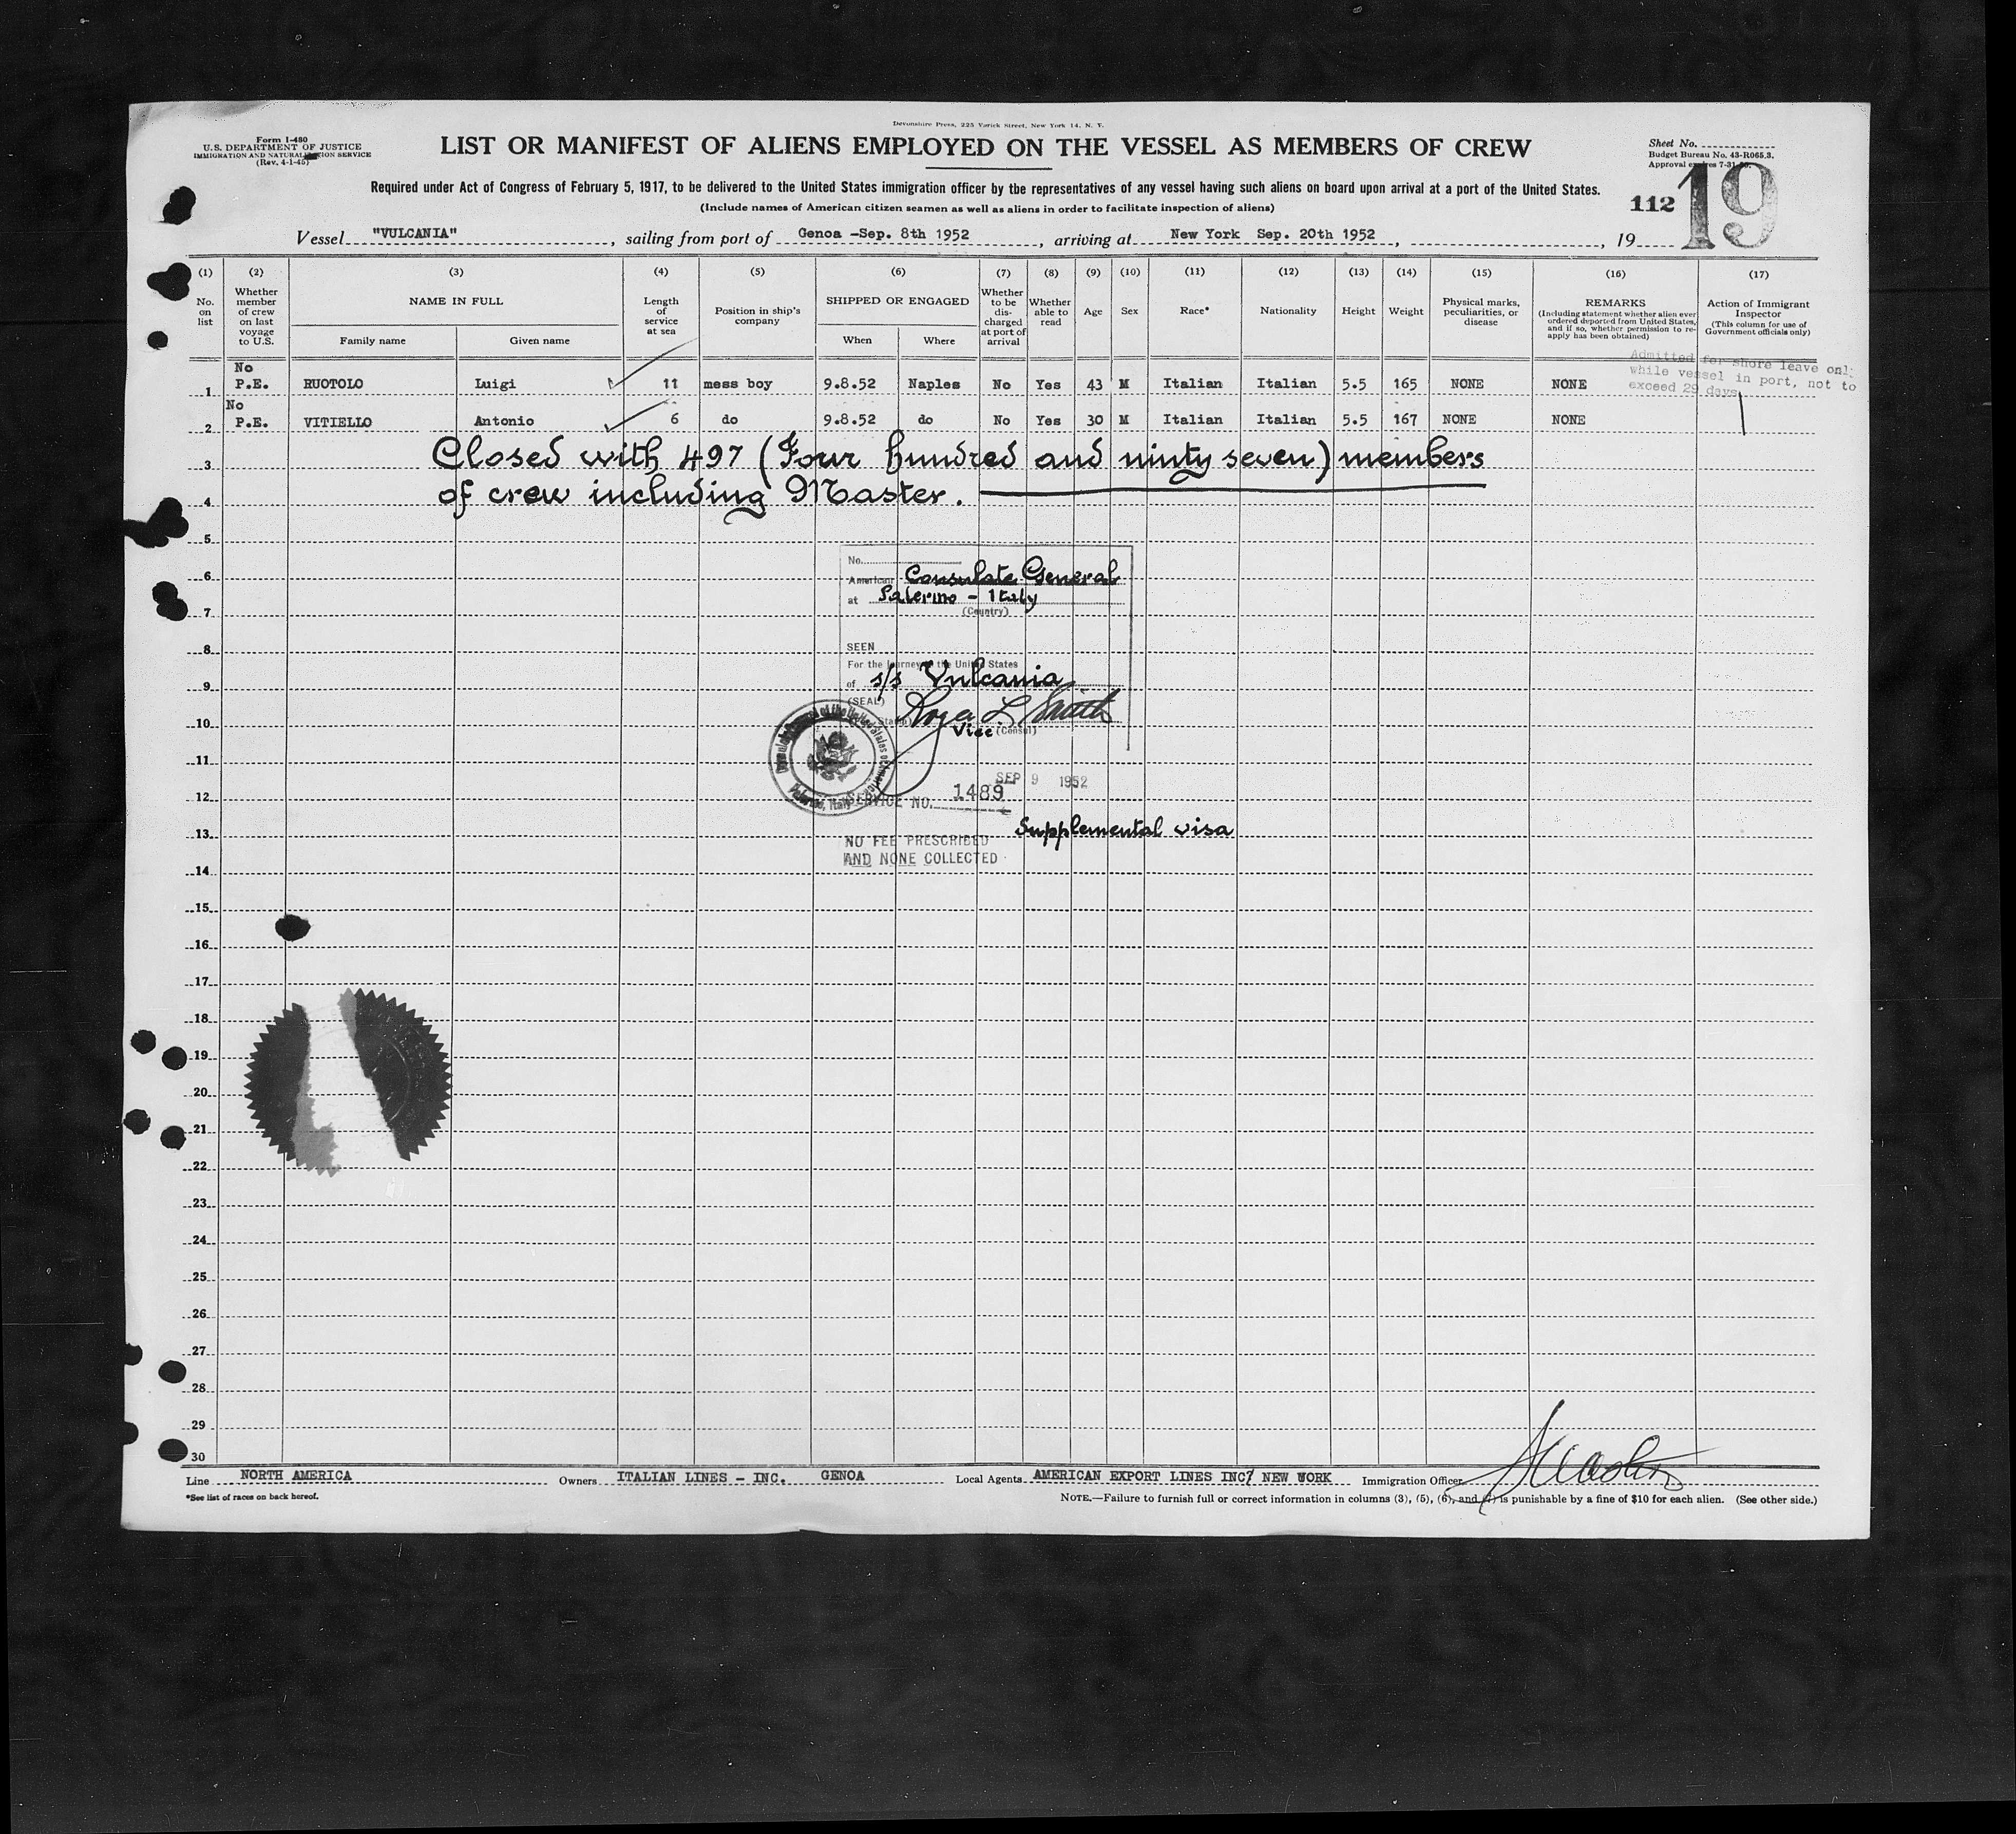 Devonshire Press, 225 Varick Street, New York 14, N. Y.
Form I-480
U.S. DEPARTMENT OF JUSTICE
IMMIGRATION AND NATURALIZATION SERVICE
(Rev. 4-1-45)
LIST OR MANIFEST OF ALIENS EMPLOYED ON THE VESSEL AS MEMBERS OF CREW
Sheet No.
Budget Bureau No. 43-R065.3.
Approval expires 7-31-
Required under Act of Congress of February 5, 1917, to be delivered to the United States immigration officer by the representatives of any vessel having such aliens on board upon arrival at a port of the United States.
(Include names of American citizen seamen as well as aliens in order to facilitate inspection of aliens)
112 19
Vessel "VULCANIA", sailing from port of Genoa -Sep. 8th 1952, arriving at New York Sep. 20th 1952, , 19
(1) (2) (3) (4) (5) (6) (7) (8) (9) (10) (11) (12) (13) (14) (15) (16) (17)
No. on list
Whether member of crew on last voyage to U.S.
NAME IN FULL
Family name
Given name
Length of service at sea
Position in ship's company
SHIPPED OR ENGAGED
When
Where
Whether to be discharged at port of arrival
Whether able to read
Age
Sex
Race*
Nationality
Height
Weight
Physical marks, peculiarities, or disease
REMARKS
(Including statement whether alien ever ordered deported from United States, and if so, whether permission to reapply has been obtained)
Action of Immigrant Inspector
(This column for use of Government officials only)
Admitted for shore leave only
while vessel in port, not to
exceed 29 days
No
1 P.E. RUOTOLO Luigi 11 mess boy 9.8.52 Naples No Yes 43 M Italian Italian 5.5 165 NONE NONE
No
2 P.E. VITIELLO Antonio 6 do 9.8.52 do No Yes 30 M Italian Italian 5.5 167 NONE NONE
3 Closed with 497 (Four hundred and ninty seven) members
4 of crew including Master.
5
No.
6 American Consulate General
at Palermo - Italy
7 (Country)
8 SEEN
For the journey to the United States
9 of s/s Vulcania
(SEAL)
10 Roger L. Smith
Vice (Consul)
11
SEP 9 1952
12 SERVICE NO. 1489
Palermo, Italy
Supplemental visa
13 NO FEE PRESCRIBED
AND NONE COLLECTED
14
15
16
17
18
19
20
21
22
23
24
25
26
27
28
29
30
Line NORTH AMERICA Owners ITALIAN LINES - INC. GENOA Local Agents AMERICAN EXPORT LINES INC. NEW WORK Immigration Officer
*See list of races on back hereof.
NOTE.—Failure to furnish full or correct information in columns (3), (5), (6), and (7) is punishable by a fine of $10 for each alien. (See other side.)